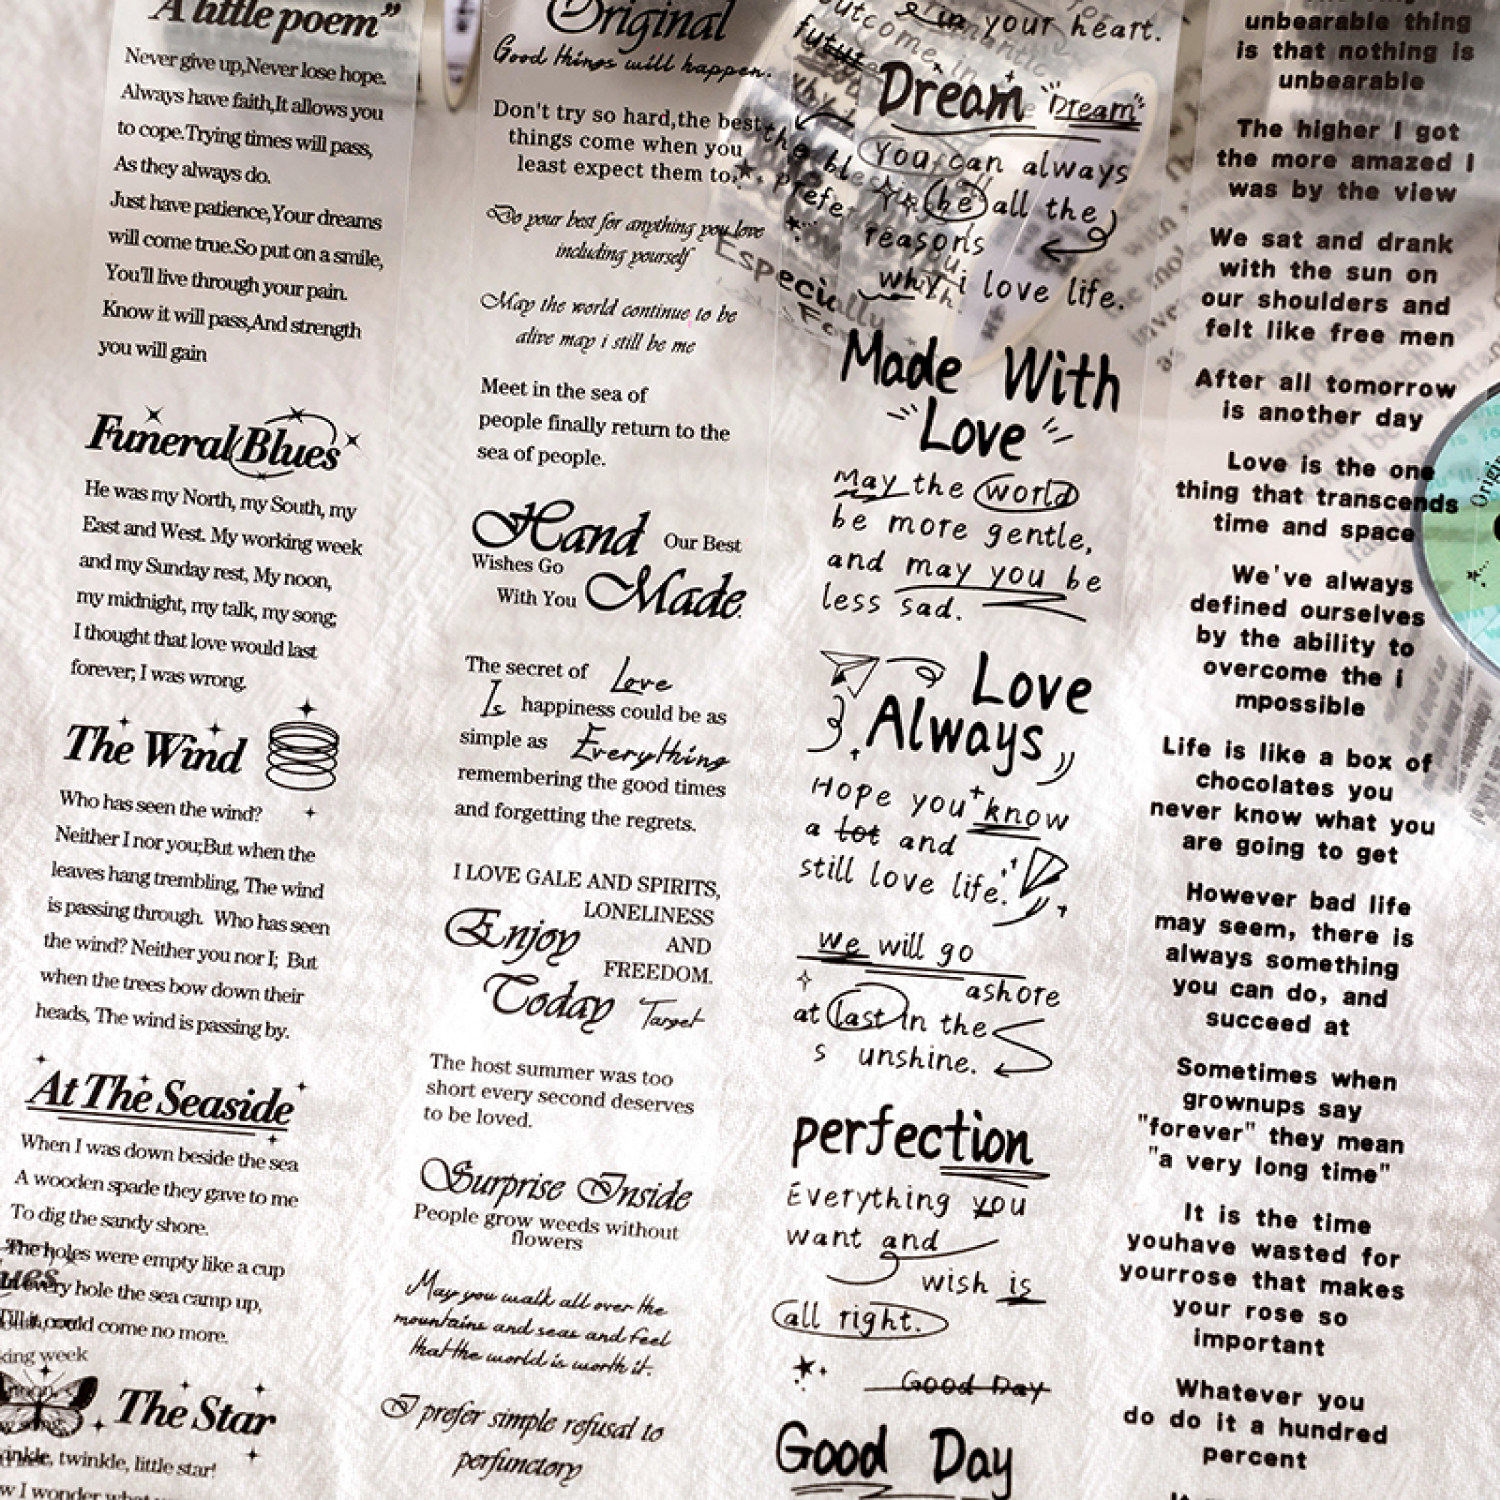 A little poem”
Never give up,Never lose hope.
Always have faith,It allows you
to cope.Trying times will pass,
As they always do.
Just have patience,Your dreams
will come true.So put on a smile,
You'll live through your pain.
Know it will pass,And strength
you will gain
Funeral Blues
He was my North, my South, my
East and West. My working week
and my Sunday rest, My noon,
my midnight, my talk, my song;
I thought that love would last
forever; I was wrong.
The Wind
Who has seen the wind?
Neither I nor you;But when the
leaves hang trembling, The wind
is passing through. Who has seen
the wind? Neither you nor I; But
when the trees bow down their
heads, The wind is passing by.
At The Seaside
When I was down beside the sea
A wooden spade they gave to me
To dig the sandy shore.
The holes were empty like a cup
In every hole the sea camp up,
Till it could come no more.
king week
The Star
twinkle, little star!
I wonder
Original
Good things will happen.
Don't try so hard,the best
things come when you
least expect them to.
Do your best for anything you love
including yourself
May the world continue to be
alive may i still be me
Meet in the sea of
people finally return to the
sea of people.
Hand Our Best
Wishes Go
With You Made
The secret of Love
Is happiness could be as
simple as Everything
remembering the good times
and forgetting the regrets.
I LOVE GALE AND SPIRITS,
LONELINESS
Enjoy AND
FREEDOM.
Today Target
The host summer was too
short every second deserves
to be loved.
Surprise Inside
People grow weeds without
flowers
May you walk all over the
mountains and seas and feel
that the world is worth it.
I prefer simple refusal to
perfunctory
in your heart.
Dream "Dream"
You can always
be all the
reasons
why i love life.
Especially
Made With
Love
May the world
be more gentle,
and may you be
less sad.
Love
Always
Hope you know
a lot and
still love life.
We will go
ashore
at last in the
s unshine.
perfection
Everything you
want and
wish is
all right.
Good Day
Good Day
unbearable thing
is that nothing is
unbearable
The higher I got
the more amazed I
was by the view
We sat and drank
with the sun on
our shoulders and
felt like free men
After all tomorrow
is another day
Love is the one
thing that transcends
time and space
We've always
defined ourselves
by the ability to
overcome the i
mpossible
Life is like a box of
chocolates you
never know what you
are going to get
However bad life
may seem, there is
always something
you can do, and
succeed at
Sometimes when
grownups say
"forever" they mean
"a very long time"
It is the time
youhave wasted for
yourrose that makes
your rose so
important
Whatever you
do do it a hundred
percent